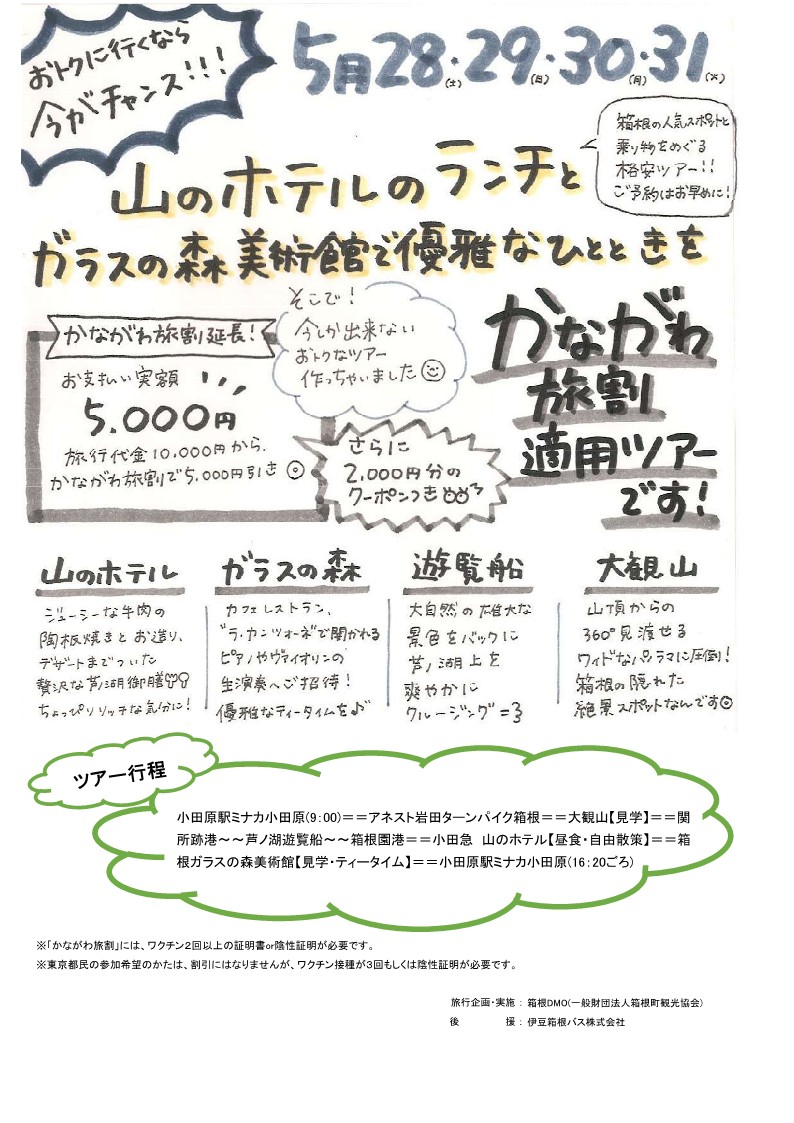 おトクに行くなら
今がチャンス!!!
5月28(土)・29(日)・30(月)・31(火)
箱根の人気スポットと
乗り物をめぐる
格安ツアー!!
ご予約はお早めに!
山のホテルのランチと
ガラスの森美術館で優雅なひとときを
かながわ旅割延長!
お支払い実額
5.000円
旅行代金10.000円から、
かながわ旅割で5.000円引き
そこで!
今しか出来ない
おトクなツアー
作っちゃいました
さらに
2.000円分の
クーポンつき
かながわ
旅割
適用ツアー
です!
山のホテル
ジューシーな牛肉の
陶板焼きとお造り、
デザートまでついた
贅沢な芦ノ湖御膳
ちょっぴりリッチな気分に!
ガラスの森
カフェレストラン、
"ラ・カンツォーネ"で開かれる
ピアノやヴァイオリンの
生演奏へご招待!
優雅なティータイムを♪
遊覧船
大自然の雄大な
景色をバックに
芦ノ湖上を
爽やかに
クルージング
大観山
山頂からの
360°見渡せる
ワイドなパノラマに圧倒!
箱根の隠れた
絶景スポットなんです
ツアー行程
小田原駅ミナカ小田原(9:00)==アネスト岩田ターンパイク箱根==大観山【見学】==関
所跡港~~芦ノ湖遊覧船~~箱根園港==小田急 山のホテル【昼食・自由散策】==箱
根ガラスの森美術館【見学・ティータイム】==小田原駅ミナカ小田原(16:20ごろ)
※「かながわ旅割」には、ワクチン2回以上の証明書or陰性証明が必要です。
※東京都民の参加希望のかたは、割引にはなりませんが、ワクチン接種が3回もしくは陰性証明が必要です。
旅行企画・実施 : 箱根DMO(一般財団法人箱根町観光協会)
後 援 : 伊豆箱根バス株式会社